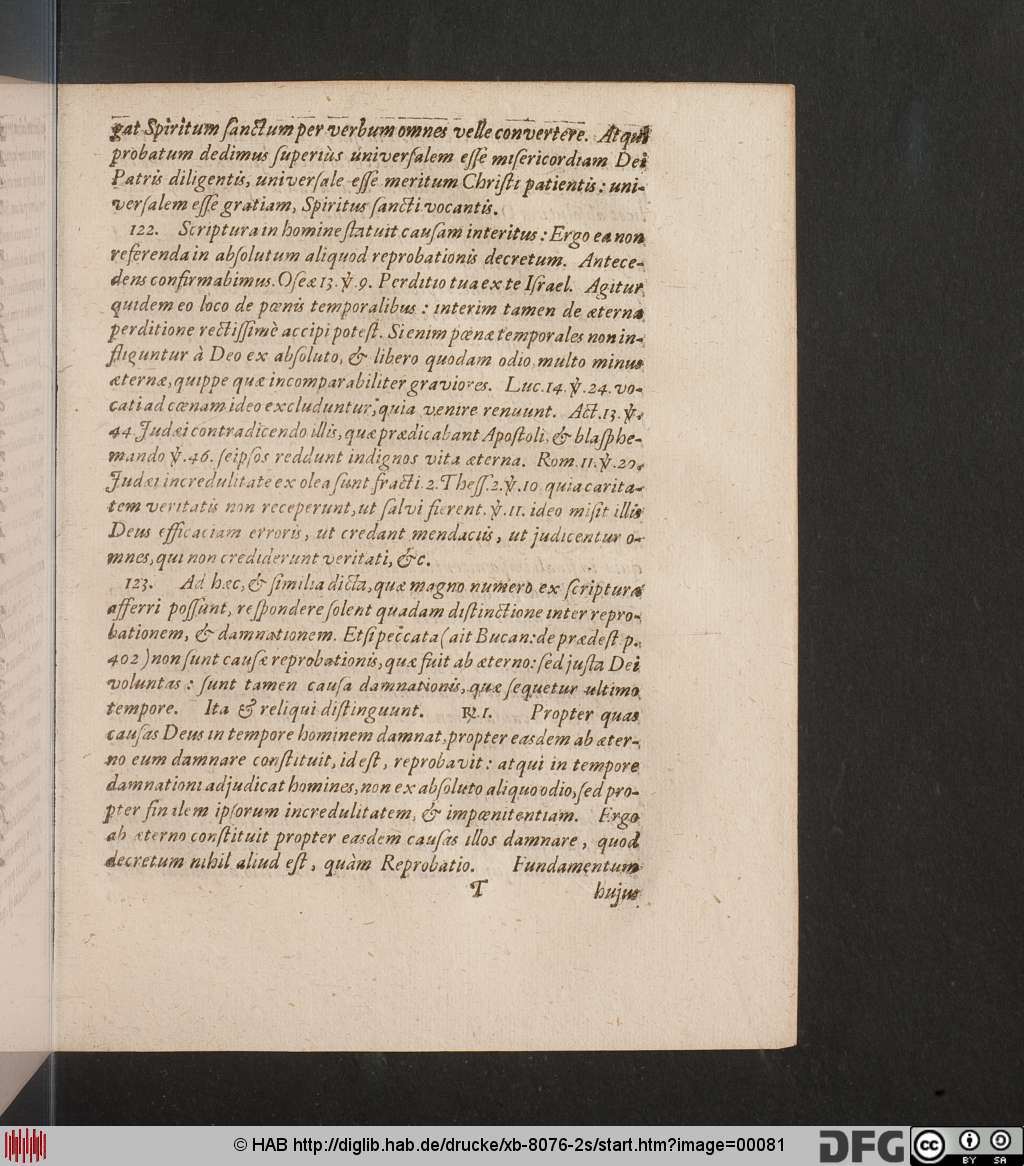 gat Spiritum ſanctum per verbum omnes velle convertere. Atqui
probatum dedimus ſuperiùs univerſalem eſſe miſericordiam Dei
Patris diligentis, univerſale eſſe meritum Chriſti patientis: uni-
verſalem eſſe gratiam, Spiritus ſancti vocantis.
122. Scriptura in homine ſtatuit cauſam interitus: Ergo ea non
referenda in abſolutum aliquod reprobationis decretum. Antece-
dens confirmabimus. Oſeæ 13. ℣. 9. Perditio tua ex te Iſrael. Agitur
quidem eo loco de pœnis temporalibus: interim tamen de æterna
perditione rectiſſimè accipi poteſt. Si enim pœnæ temporales non in-
fliguntur à Deo ex abſoluto, & libero quodam odio, multo minus
æternæ, quippe quæ incomparabiliter graviores. Luc. 14. ℣. 24. vo-
cati ad cœnam ideo excluduntur, quia venire renuunt. Act. 13. ℣.
44. Judæi contradicendo illis, quæ prædicabant Apoſtoli, & blaſphe-
mando ℣. 46. ſeipſos reddunt indignos vita æterna. Rom. 11. ℣. 20.
Judæi incredulitate ex olea ſunt fracti. 2. Theſſ. 2. ℣. 10. quia carita-
tem veritatis non receperunt, ut ſalvi fierent. ℣. 11. ideo miſit illis
Deus efficaciam erroris, ut credant mendaciis, ut judicentur o-
mnes, qui non crediderunt veritati, &c.
123. Ad hæc, & ſimilia dicta, quæ magno numero ex ſcriptura
afferri poſſunt, reſpondere ſolent quadam diſtinctione inter repro-
bationem, & damnationem. Etſi peccata (ait Bucan: de prædeſt p.
402) non ſunt cauſæ reprobationis, quæ fuit ab æterno: ſed juſta Dei
voluntas: ſunt tamen cauſa damnationis, quæ ſequetur ultimo
tempore. Ita & reliqui diſtinguunt. ℞. 1. Propter quas
cauſas Deus in tempore hominem damnat, propter easdem ab æter-
no eum damnare conſtituit, id eſt, reprobavit: atqui in tempore
damnationi adjudicat homines, non ex abſoluto aliquo odio, ſed pro-
pter finalem ipſorum incredulitatem, & impœnitentiam. Ergo
ab æterno conſtituit propter easdem cauſas illos damnare, quod
decretum nihil aliud eſt, quàm Reprobatio. Fundamentum
T hujus
© HAB http://diglib.hab.de/drucke/xb-8076-2s/start.htm?image=00081
DFG
cc
BY SA